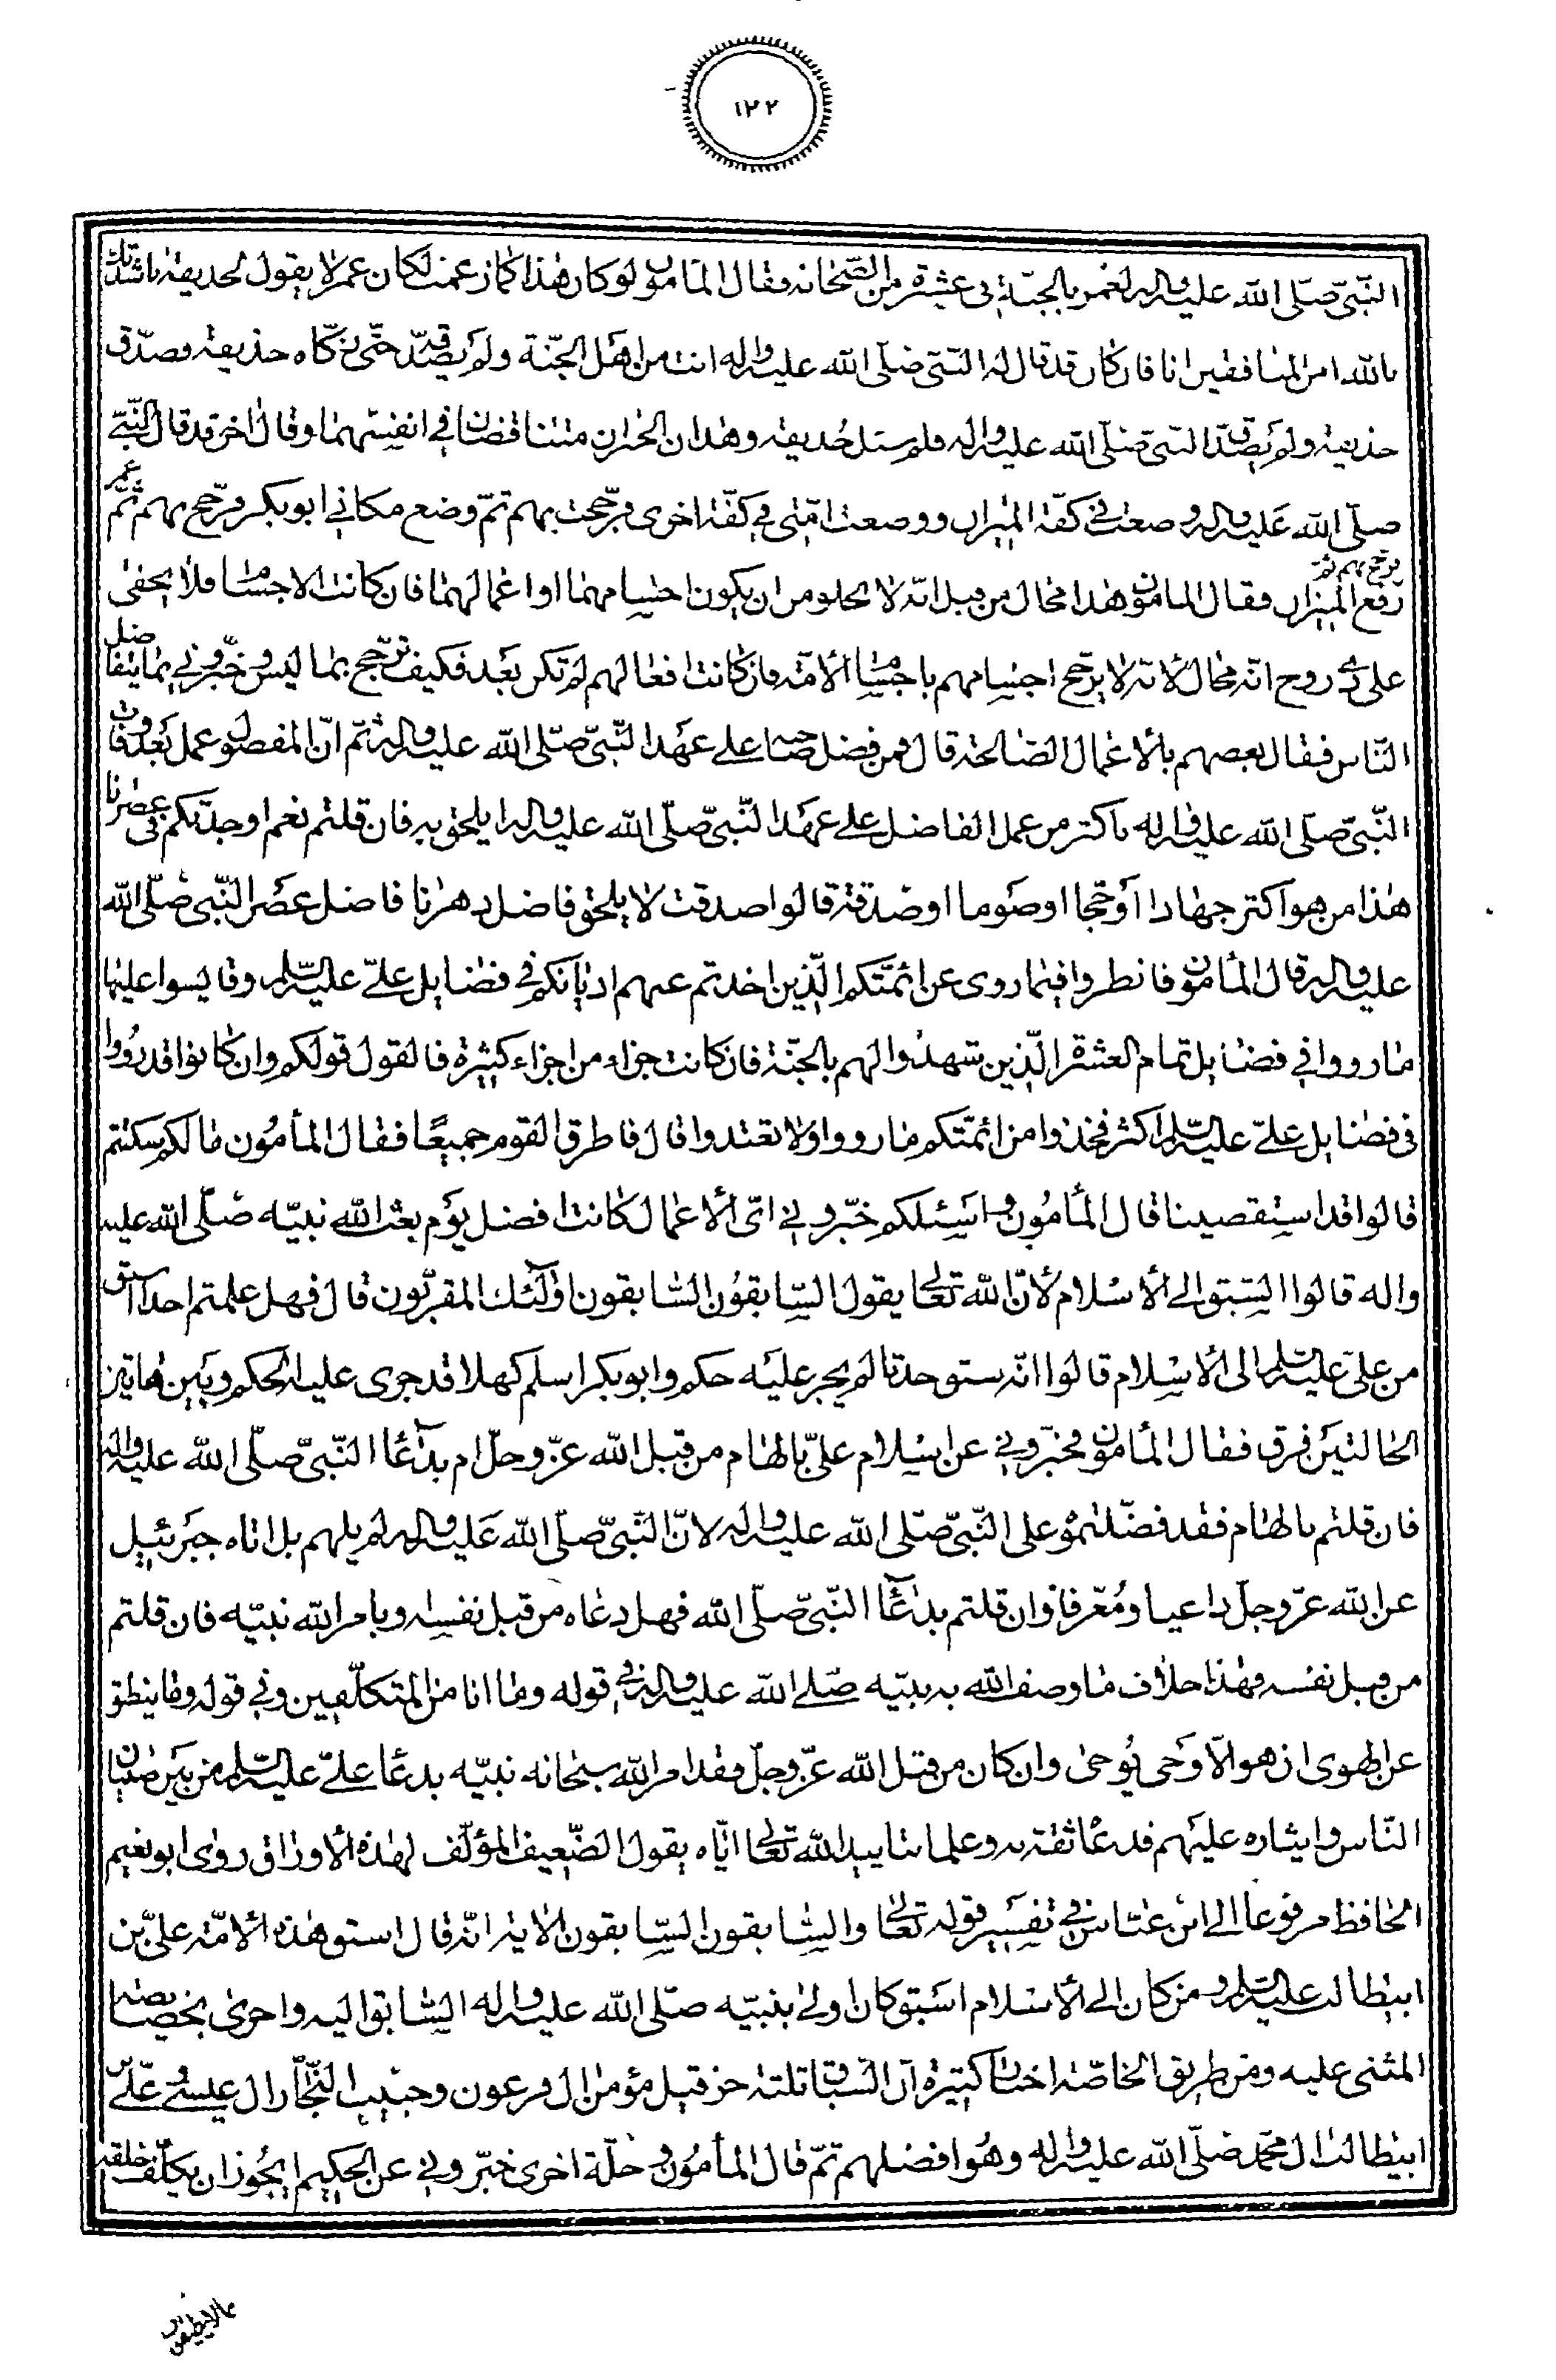 ١٢٢
النّبىّ صلّى الله عليه واله لعمر بالجنّة فى عشرة من الصّحابة فقال المأمون لو كان هذا كما زعمت لكان عمر لا يقول لحذيفة ناشدتك
بالله امن المنافقين انا فان كان قد قال له النّبى صلّى الله عليه واله انت من اهل الجنّة ولم يصدّقه حتّى زكّاه حذيفة وصدّق
حذيفة ولم يصدّق النّبىّ صلّى الله عليه واله فلم سئل حذيفة وهذان الخبران متناقضان فى انفسهما وقال اخر قد قال النّبىّ
صلّى الله عليه واله وضعت فى كفّة الميزان ووضعت امّتى فى كفّة اخرى فرجّحت بهم ثمّ وضع مكانى ابو بكر فرجّح بهم ثمّ عمر
فرجّح بهم ثمّ
رفع الميزان فقال المأمون هذا محال من قبل انّه لا يخلو من ان يكون اجسامهما او اعمالهما فان كانت الاجسام فلا يخفى
على ذى روح انّه محال لانّه لا يرجّح اجسامهم باجسام الامّة وان كانت افعالهم لم تكن بعد فكيف ترجّح بما ليس وخبّرونى بما يتفاضل
النّاس فقال بعضهم بالاعمال الصّالحة قال فمن فضل صاحبه على عهد النّبىّ صلّى الله عليه واله ثمّ انّ المفضول عمل بعد وفات
النّبىّ صلّى الله عليه واله باكثر من عمل الفاضل على عهد النّبىّ صلّى الله عليه واله ايلحق به فان قلتم نعم اوجدتكم فى عصرنا
هذا من هو اكثر جهادا او حجّا او صوما او صدقة قالوا صدقت لا يلحق فاضل دهرنا فاضل عصر النّبى صلّى الله
عليه واله قال المأمون فانظروا فيما روى عن ائمّتكم الّذين اخذتم عنهم اديانكم فى فضايل علىّ عليه السّلم وقايسوا عليها
ما رووا فى فضايل تمام العشرة الّذين شهدوا لهم بالجنّة فان كانت جزاء من اجزاء كثيرة فالقول قولكم وان كانوا قد رووا
فى فضايل علىّ عليه السّلم اكثر فخذوا من ائمّتكم ما رووا ولا تعتدوا قال فاطرق القوم جميعًا فقال المأمون ما لكم سكتم
قالوا قد استقصينا قال المأمون واسئلكم خبّرونى اىّ الاعمال كانت افضل يوم بعث الله نبيّه صلّى الله عليه
واله قالوا السّبق الى الاسلام لانّ الله تعالى يقول السّابقون السّابقون اولئك المقرّبون قال فهل علمتم احدا اسبق
من علىّ عليه السّلم الى الاسلام قالوا انّه سبق حدثا لم يجر عليه حكم وابو بكر اسلم كهلا قد جرى عليه الحكم وبين هاتين
الحالتين فرق فقال المأمون فخبّرونى عن اسلام علىّ بالهام من قبل الله عزّ وجلّ ام بدعاء النّبىّ صلّى الله عليه واله
فان قلتم بالهام فقد فضّلتموه على النّبىّ صلّى الله عليه واله لانّ النّبىّ صلّى الله عليه واله لم يلهم بل اتاه جبرئيل
عن الله عزّ وجلّ داعيا ومعرّفا وان قلتم بدعاء النّبىّ صلّى الله فهل دعاه من قبل نفسه وبامر الله نبيّه فان قلتم
من قبل نفسه فهذا خلاف ما وصف الله به نبيّه صلّى الله عليه واله فى قوله وما انا من المتكلّفين وفى قوله وما ينطق
عن الهوى ان هو الّا وحى يوحى وان كان من قبل الله عزّ وجلّ فقد امر الله سبحانه نبيّه بدعاء علىّ عليه السّلم من بين صبيان
النّاس وايثاره عليهم فدعا ثقة به وعلما بتاييد الله تعالى ايّاه يقول الضّعيف المؤلّف لهذه الاوراق روى ابو نعيم
الحافظ مرفوعا الى ابن عبّاس فى تفسير قوله تعالى والسّابقون السّابقون الاية انّه قال اسبق هذه الامّة علىّ بن
ابيطالب عليه السّلم ومن كان الى الاسلام اسبق كان اولى بنبيّه صلّى الله عليه واله السّابق اليه واحرى بخصايصه
المثنى عليه ومن طريق الخاصّة اخبار كثيرة انّ السّباق ثلثة حزقيل مؤمن ال فرعون وحبيب النّجّار ال عيسى علىّ بن
ابيطالب ال محمّد صلّى الله عليه واله وهو افضلهم ثمّ قال المأمون وخلّة اخرى خبّرونى عن الحكيم ايجوز ان يكلّف خلقه
ما لا يطيقون